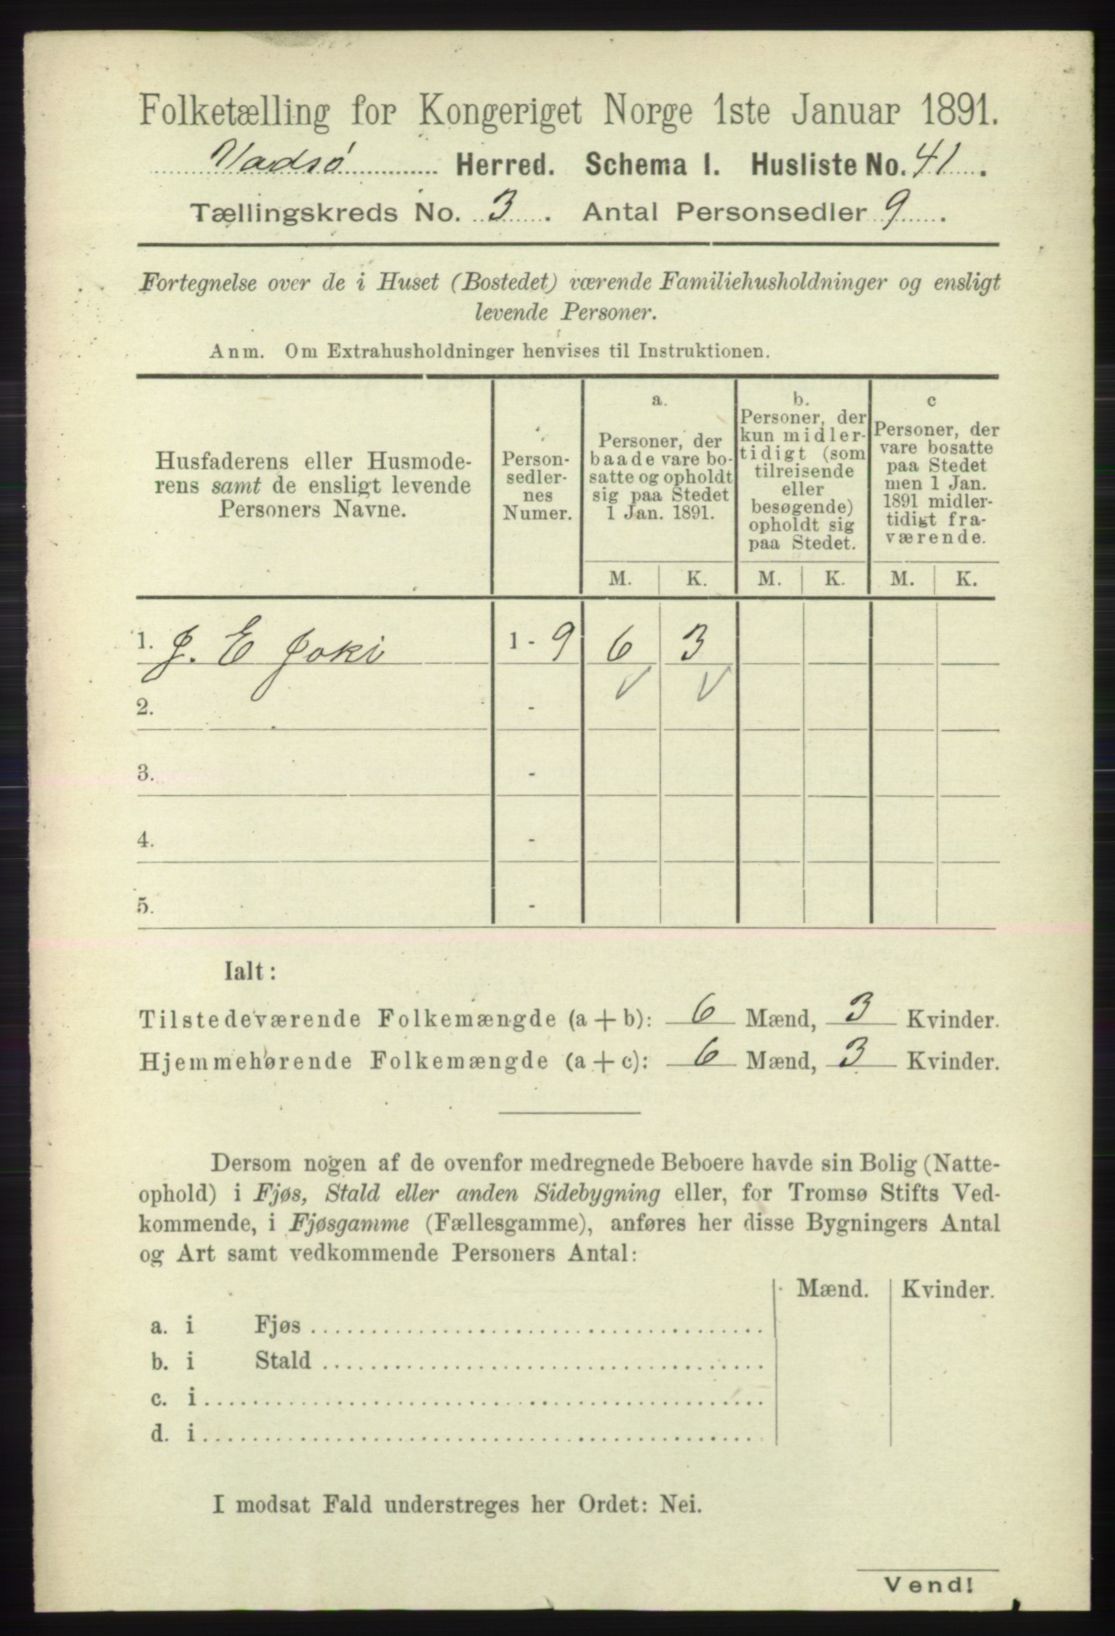 Folketælling for Kongeriget Norge 1ste Januar 1891.
Vadsø Herred. Schema I. Husliste No. 41.
Tællingskreds No. 3. Antal Personsedler 9.
Fortegnelse over de i Huset (Bostedet) værende Familiehusholdninger og ensligt
levende Personer.
Anm. Om Extrahusholdninger henvises til Instruktionen.
Husfaderens eller Husmode-
rens samt de ensligt levende
Personers Navne.
Person-
sedler-
nes
Numer.
a.
Personer, der
baade vare bo-
satte og opholdt
sig paa Stedet
1 Jan. 1891.
b.
Personer, der
kun midler-
tidigt (som
tilreisende
eller
besøgende)
opholdt sig
paa Stedet.
c
Personer, der
vare bosatte
paa Stedet
men 1 Jan.
1891 midler-
tidigt fra-
værende.
M. K. M. K. M. K.
1. J. E Joki 1 - 9 6 3
2. -
3. -
4. -
5. -
Ialt:
Tilstedeværende Folkemængde (a + b): 6 Mænd, 3 Kvinder.
Hjemmehørende Folkemængde (a + c): 6 Mænd, 3 Kvinder.
Dersom nogen af de ovenfor medregnede Beboere havde sin Bolig (Natte-
ophold) i Fjøs, Stald eller anden Sidebygning eller, for Tromsø Stifts Ved-
kommende, i Fjøsgamme (Fællesgamme), anføres her disse Bygningers Antal
og Art samt vedkommende Personers Antal:
Mænd. Kvinder.
a. i Fjøs
b. i Stald
c. i
d. i
I modsat Fald understreges her Ordet: Nei.
Vend!